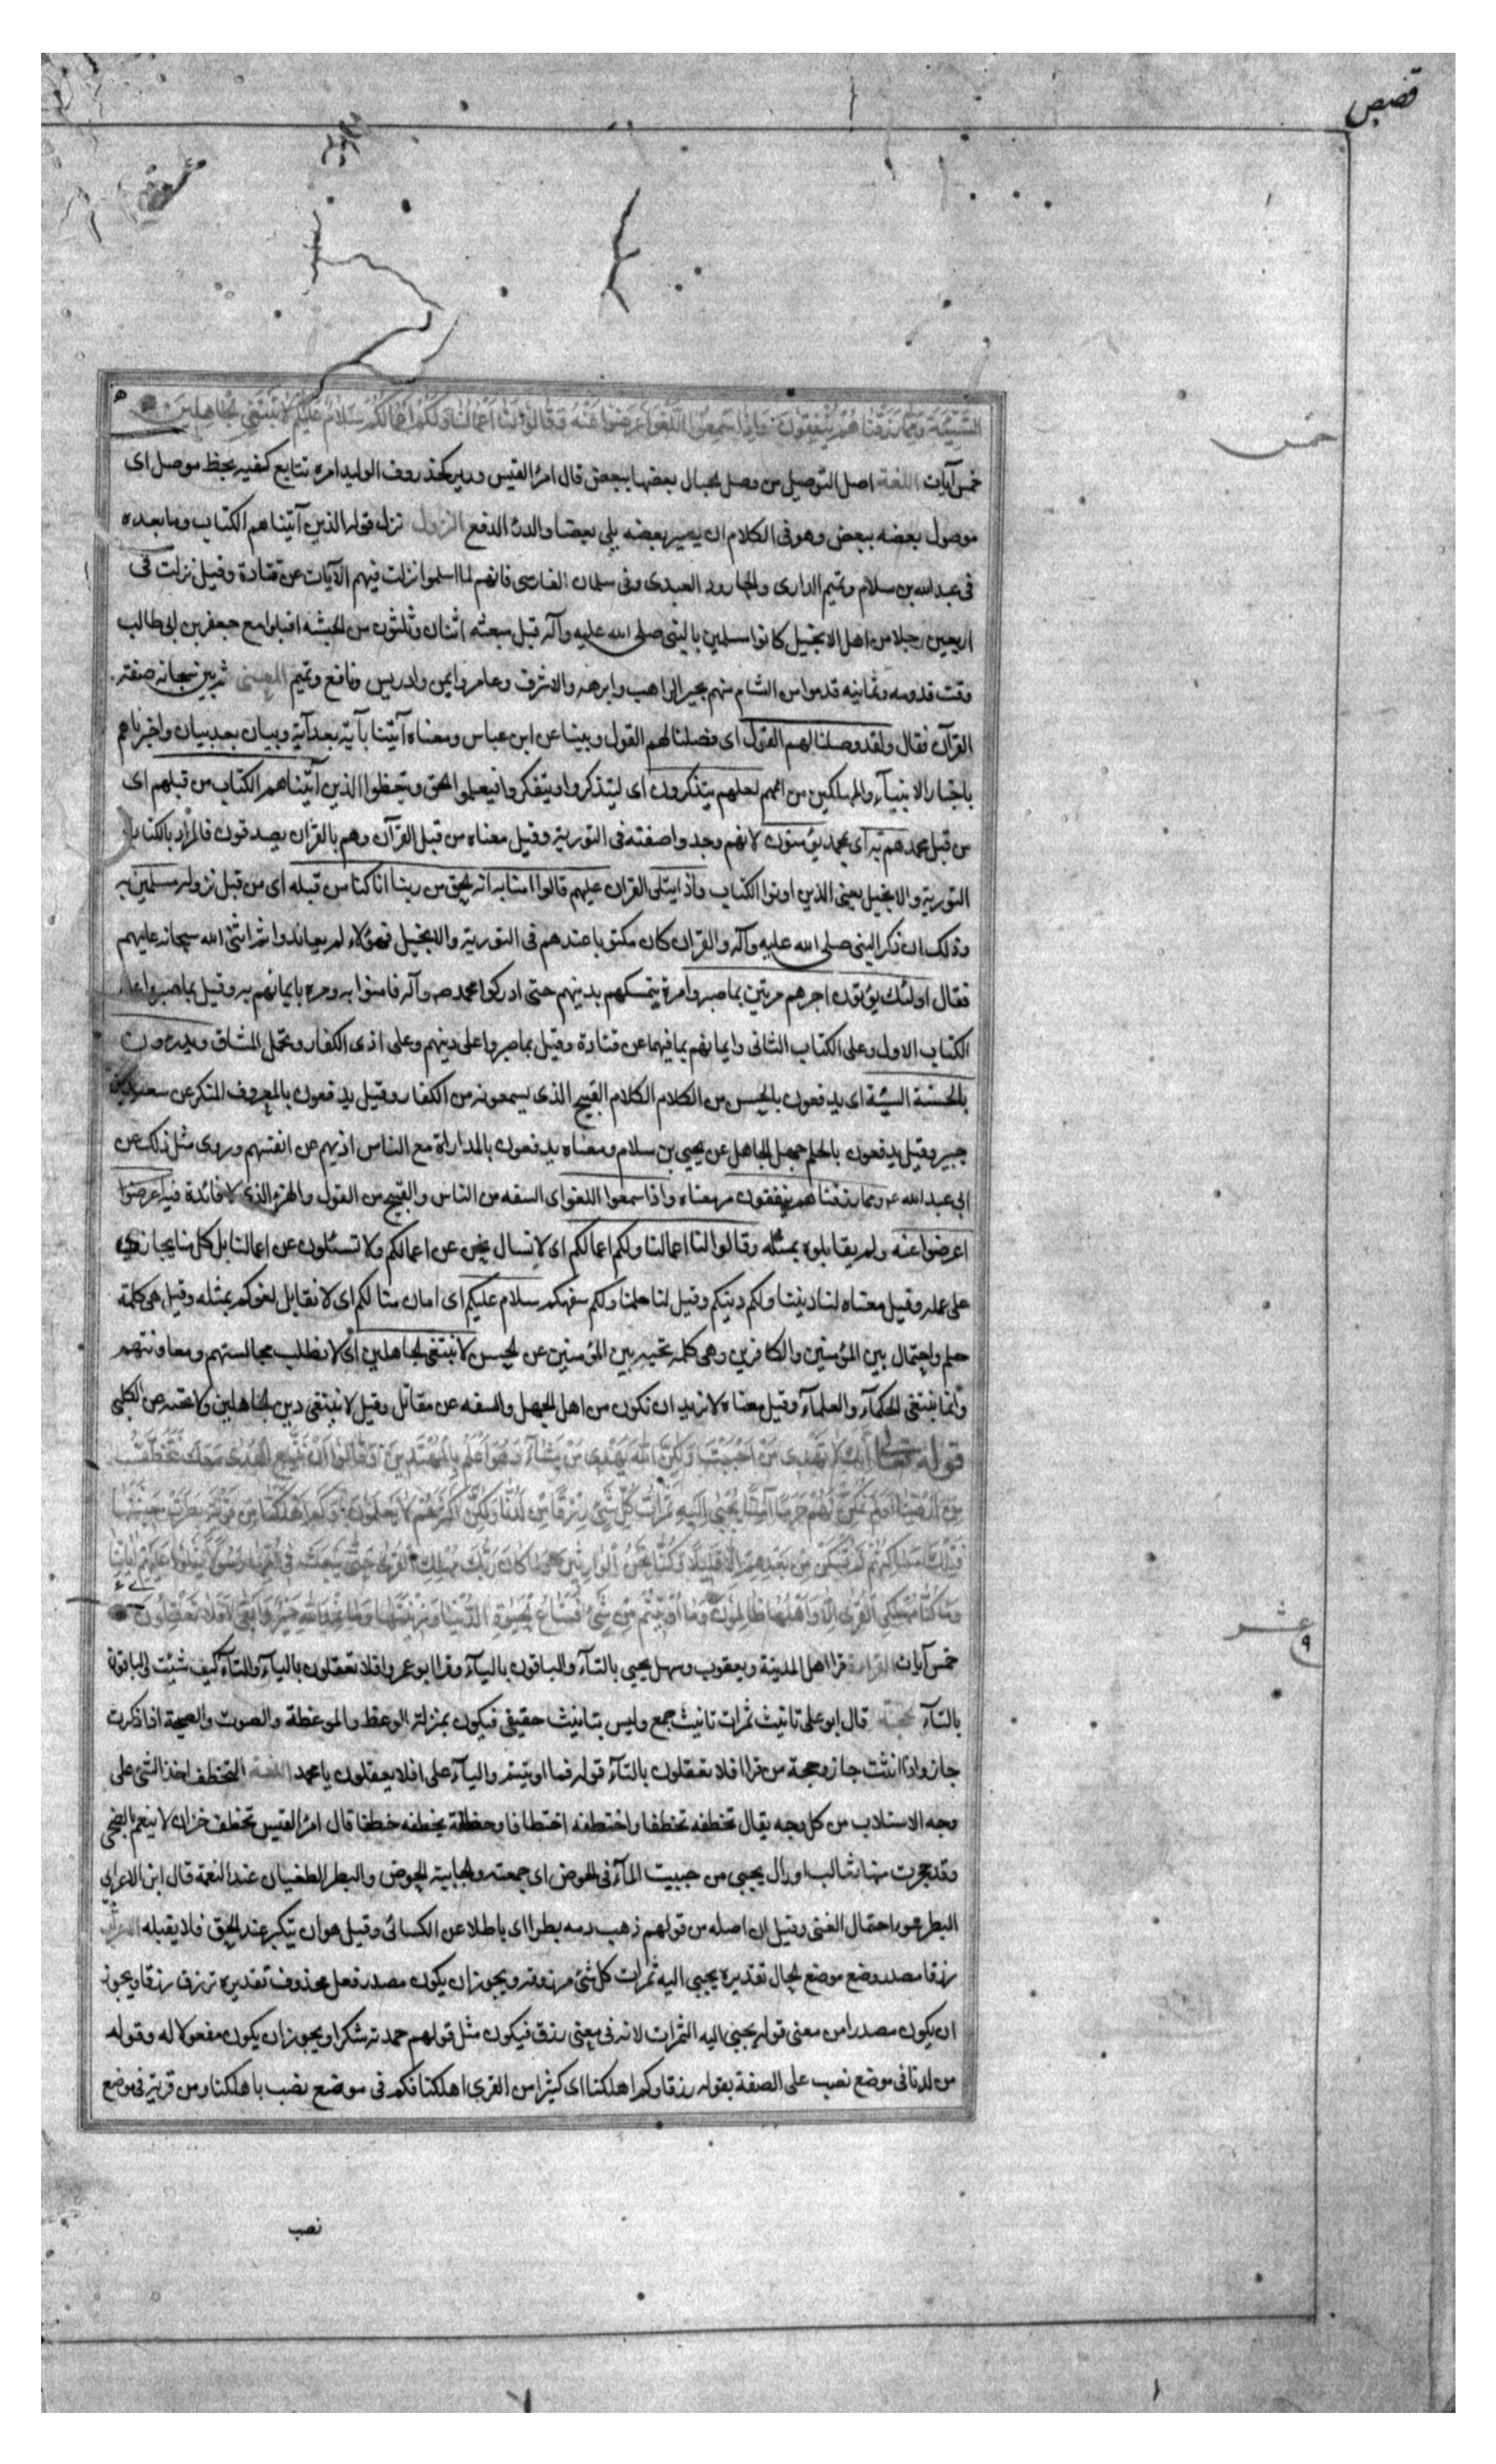 قصص
السَّيِّئَةَ وَمِمَّا رَزَقْنَاهُمْ يُنْفِقُونَ وَإِذَا سَمِعُوا اللَّغْوَ أَعْرَضُوا عَنْهُ وَقَالُوا لَنَا أَعْمَالُنَا وَلَكُمْ أَعْمَالُكُمْ سَلَامٌ عَلَيْكُمْ لَا نَبْتَغِي الْجَاهِلِينَ
خمس
خمس آيات اللغة اصل التوصيل من وصل الحبال بعضها ببعض قال امرؤ القيس درير كخذروف الوليد امره تتابع كفيه بخيط موصل اى
موصول بعضه ببعض وهو فى الكلام ان يصير بعضه يلى بعضا والدرء الدفع النزول نزل قوله الذين آتيناهم الكتاب وما بعده
فى عبد الله بن سلام وتميم الدارى والجارود العبدى وفى سلمان الفارسى فانهم لما اسلموا نزلت فيهم الآيات عن قتادة وقيل نزلت فى
اربعين رجلا من اهل الانجيل كانوا مسلمين بالنبى صلى الله عليه وآله قبل مبعثه اثنان وثلثون من الحبشه اقبلوا مع جعفر بن ابى طالب
وقت قدومه وثمانيه قدموا من الشام منهم بحيرا الراهب وابرهه والاشرف وعامر وايمن وادريس ونافع وتميم المعنى ثم بين سبحانه صفته
القرآن فقال ولقد وصلنا لهم القول اى فصلنا لهم القول وبينا عن ابن عباس ومعناه آتينا بآية بعد آية وبيان بعد بيان واخبرناهم
باخبار الانبيآء والمهلكين من اممهم لعلهم يتذكرون اى ليتذكروا ويتفكروا فيعلموا الحق ويتعظوا الذين آتيناهم الكتاب من قبلهم اى
من قبل محمد هم به اى بمحمد يؤمنون لانهم وجدوا صفته فى التورية وقيل معناه من قبل القرآن وهم بالقرآن يصدقون فالمراد بالكتاب
التورية والانجيل يعنى الذين اوتوا الكتاب واذا يتلى القران عليهم قالوا امنا به انه الحق من ربنا انا كنا من قبله اى من قبل نزوله مسلمين به
وذلك ان ذكر النبى صلى الله عليه وآله والقران كان مكتوبا عندهم فى التورية والانجيل فهؤلاء لم يعاندوا ثم اثنى الله سبحانه عليهم
فقال اولئك يؤتون اجرهم مرتين بما صبروا مرة بتمسكهم بدينهم حتى ادركوا محمدا ص وآله فامنوا به ومرة بايمانهم به وقيل بما صبروا على
الكتاب الاول وعلى الكتاب الثانى وايمانهم بما فيهما عن قتادة وقيل بما صبروا على دينهم وعلى اذى الكفار وتحمل المشاق ويدرءون
بالحسنة السيئة اى يدفعون بالحسن من الكلام الكلام القبيح الذى يسمعونه من الكفار وقيل يدفعون بالمعروف المنكر عن سعيد بن
جبير وقيل يدفعون بالحلم جهل الجاهل عن يحيى بن سلام ومعناه يدفعون بالمداراة مع الناس اذيهم عن انفسهم وروى مثل ذلك عن
ابى عبد الله ع ومما رزقناهم ينفقون مر معناه واذا سمعوا اللغو اى السفه من الناس والقبيح من القول والهزء الذى لا فائدة فيه اعرضوا
اعرضوا عنه ولم يقابلوه بمثله وقالوا لنا اعمالنا ولكم اعمالكم اى لا نسال نحن عن اعمالكم ولا تسئلون عن اعمالنا بل كل منا يجازى
على عمله وقيل معناه لنا ديننا ولكم دينكم وقيل لنا حلمنا ولكم سفهكم سلام عليكم اى امان منا لكم اى لا نقابل لغوكم بمثله وقيل هى كلمة
حلم واحتمال بين المؤمنين والكافرين وهى كلمه تحيه بين المؤمنين عن الحسن لا نبتغى الجاهلين اى لا نطلب مجالستهم ومعاونتهم
وانما نبتغى الحكمآء والعلمآء وقيل معناه لا نريد ان نكون من اهل الجهل والسفه عن مقاتل وقيل لا نبتغى دين الجاهلين ولا نحبه عن الكلبى
قوله تعالى إِنَّكَ لَا تَهْدِي مَنْ أَحْبَبْتَ وَلَكِنَّ اللَّهَ يَهْدِي مَنْ يَشَاءُ وَهُوَ أَعْلَمُ بِالْمُهْتَدِينَ وَقَالُوا إِنْ نَتَّبِعِ الْهُدَى مَعَكَ نُتَخَطَّفْ
مِنْ أَرْضِنَا أَوَلَمْ نُمَكِّنْ لَهُمْ حَرَمًا آمِنًا يُجْبَى إِلَيْهِ ثَمَرَاتُ كُلِّ شَيْءٍ رِزْقًا مِنْ لَدُنَّا وَلَكِنَّ أَكْثَرَهُمْ لَا يَعْلَمُونَ وَكَمْ أَهْلَكْنَا مِنْ قَرْيَةٍ بَطِرَتْ مَعِيشَتَهَا
فَتِلْكَ مَسَاكِنُهُمْ لَمْ تُسْكَنْ مِنْ بَعْدِهِمْ إِلَّا قَلِيلًا وَكُنَّا نَحْنُ الْوَارِثِينَ وَمَا كَانَ رَبُّكَ مُهْلِكَ الْقُرَى حَتَّى يَبْعَثَ فِي أُمِّهَا رَسُولًا يَتْلُو عَلَيْهِمْ آيَاتِنَا
وَمَا كُنَّا مُهْلِكِي الْقُرَى إِلَّا وَأَهْلُهَا ظَالِمُونَ وَمَا أُوتِيتُمْ مِنْ شَيْءٍ فَمَتَاعُ الْحَيَوةِ الدُّنْيَا وَزِينَتُهَا وَمَا عِنْدَ اللَّهِ خَيْرٌ وَأَبْقَى أَفَلَا تَعْقِلُونَ
عشر
خمس آيات القراءة قرا اهل المدينة ويعقوب وسهل يجبى بالتآء والباقون باليآء وقرا ابو عمرو افلا تعقلون باليآء والتآء كيف شئت والباقون
بالتآء الحجة قال ابو على تانيث ثمرات تانيث جمع وليس بتانيث حقيقى فيكون بمنزلة الوعظ والموعظة والصوت والصيحة اذا ذكرت
جاز واذا انثت جاز وحجة من قرا افلا تعقلون بالتآء قوله فما اوتيتم واليآء على افلا يعقلون يا محمد اللغة التخطف اخذ الشئ على
وجه الاستلاب من كل وجه يقال تخطفه تخطفا واختطفه اختطافا وخطفه يخطفه خطفا قال امرؤ القيس تخطف خزان الانيعم بالضحى
وقد حجرت منها ثعالب اورال يجبى من جبيت المآء فى الحوض اى جمعته والجابية الحوض والبطر الطغيان عند النعمة قال ابن الاعرابى
البطر سوء احتمال الغنى وقيل ان اصله من قولهم ذهب دمه بطرا اى باطلا عن الكسائى وقيل هو ان يتكبر عند الحق فلا يقبله الاعراب
رزقا مصدر وضع موضع الحال تقديره يجبى اليه ثمرات كل شئ مرزوقة ويجوز ان يكون مصدر فعل محذوف تقديره نرزق رزقا ويجوز
ان يكون مصدرا من معنى قوله يجبى اليه الثمرات لانه فى معنى رزق فيكون مثل قولهم حمدته شكرا ويجوز ان يكون مفعولا له وقوله
من لدنا فى موضع نصب على الصفة بقوله رزقا وكم اهلكنا اى كثيرا من القرى اهلكنا فكم فى موضع نصب باهلكنا ومن قرية فى موضع
نصب